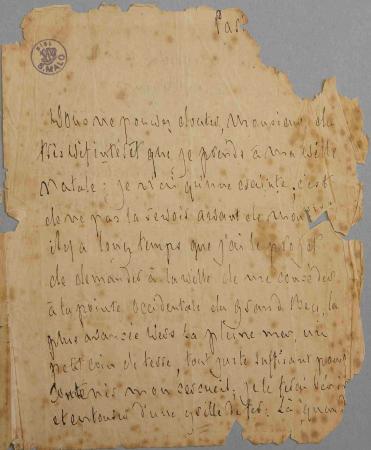 Par
VILLE
S. MALO
Vous ne pouvez douter, Monsieur, du
très vif intérêt que je prends à ma ville
natale : je n'ai qu'une crainte, c'est
de ne pas la revoir avant de mourir
il y a longtemps que j'ai le projet
de demander à la ville de me concéder
à la pointe occidentale du Grand Bey, la
plus avancée vers la pleine mer, un
petit coin de terre, tout juste suffisant pour
contenir mon cercueil. je le ferai bénir
et entourer d'une grille de fer. Là, quand